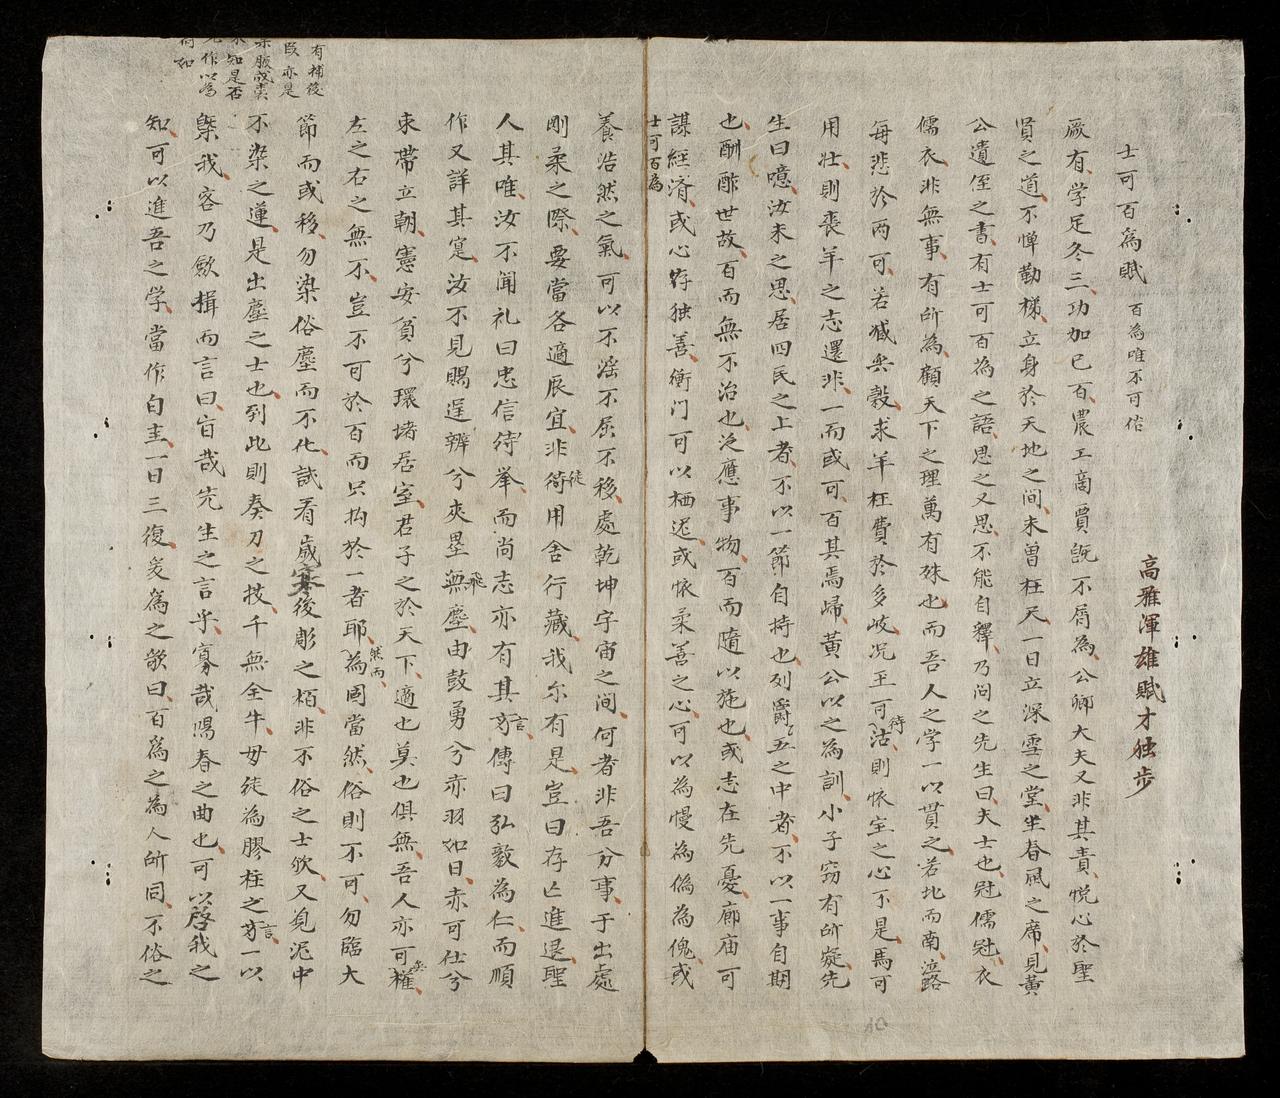 士可百為賦　百為唯不可俗
高雅渾雄賦才独步
厥有学足冬三功加己百農工商賈既不屑為公卿大夫又非其責悅心於聖
賢之道不憚勤梯立身於天地之間未曽枉天一日立深雪之堂坐春風之席見黃
公遺侄之書有士可百為之語思之又思不能自釋乃问之先生曰夫士也冠儒冠衣
儒衣非無事有所為顧天下之理萬有殊也而吾人之学一以貫之若北而南滋路
每悲於两可若臧與穀求羊枉費於多岐况玉可沽則怀宝之心不是馬可
待
用壮則喪羊之志還非一而或可百其焉歸黃公以之為訓小子窃有所疑先
生曰噫汝未之思居四民之上者不以一節自持也列爵五之中者不以一事自期
也酬酢世故百而無不治也泛應事物百而隨以施也或志在先憂廊庙可
謀經济或心存独善衡门可以栖迟或怀柔善之心可以為慢為偽為傀或
士可百為
養浩然之氣可以不滛不屈不移處乾坤宇宙之间何者非吾分事于出處
剛柔之際要當各適厥宜非符用舍行藏我尔有是豈曰存亡進退聖
徒
人其唯汝不闻礼曰忠信待举而尚志亦有其方傳曰弘毅為仁而順
言
作又詳其寔汝不見賜逞辨兮夾壘無塵由鼓勇兮赤羽如日赤可仕兮
飛
束帶立朝憲安貧兮環堵居室君子之於天下適也莫也俱無吾人亦可權
左之右之無不豈不可於百而只拘於一者耶為固當然俗則不可勿臨大
然而
節而或移勿染俗塵而不化試看歲寒後彫之栢非不俗之士欤又覓泥中
不染之蓮是出塵之士也到此則奏刀之技千無全牛毋徒為膠柱之方一以
言
槩我客乃歛揖而言曰旨哉先生之言乎寡哉陽春之曲也可以啓我之
知可以進吾之学當作白圭一日三復爰為之歌曰百為之為人所同不俗之
有補後
臣亦是
知是否
作以為